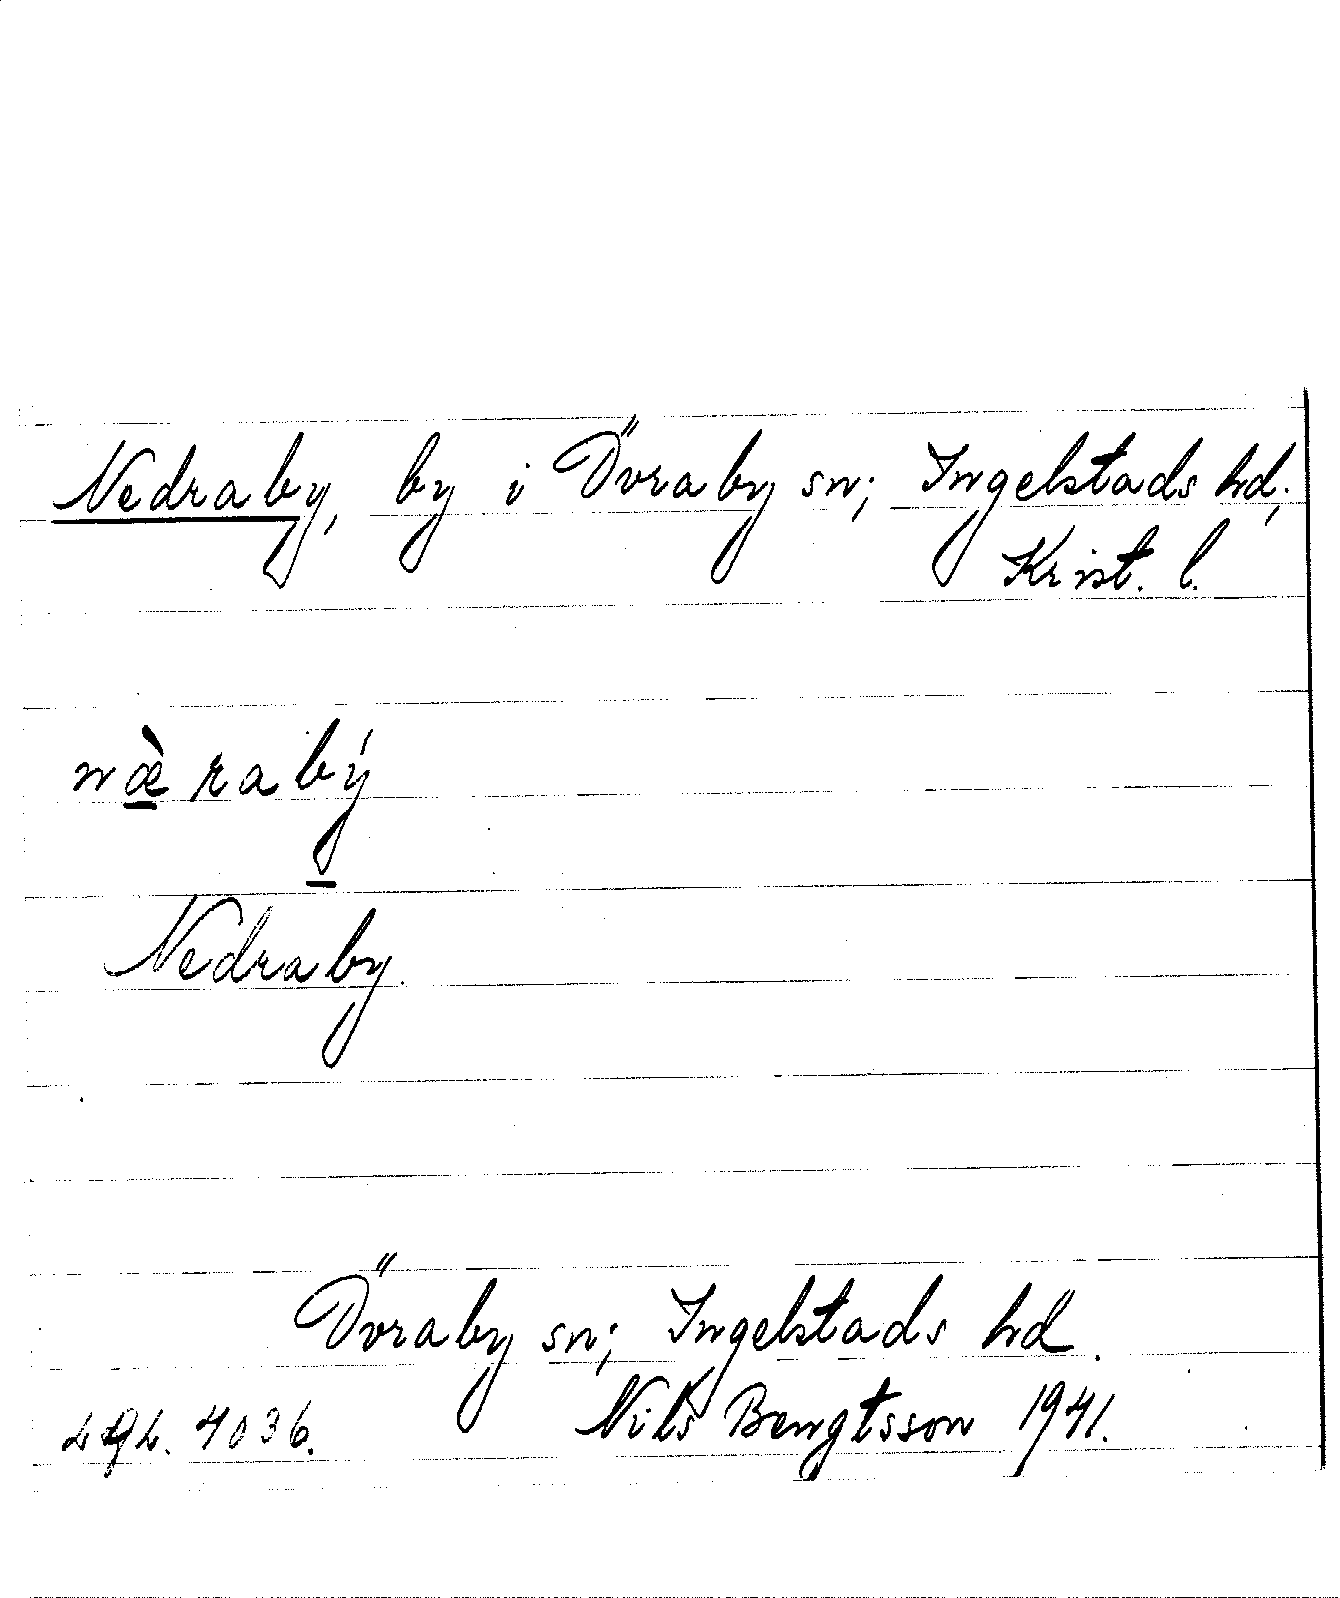 Nedraby, by i Övraby sn; Ingelstads hd;
Krist. l.
næ̀rabý
Nedraby.
Övraby sn; Ingelstads hd.
4036. Nils Bengtsson 1941.